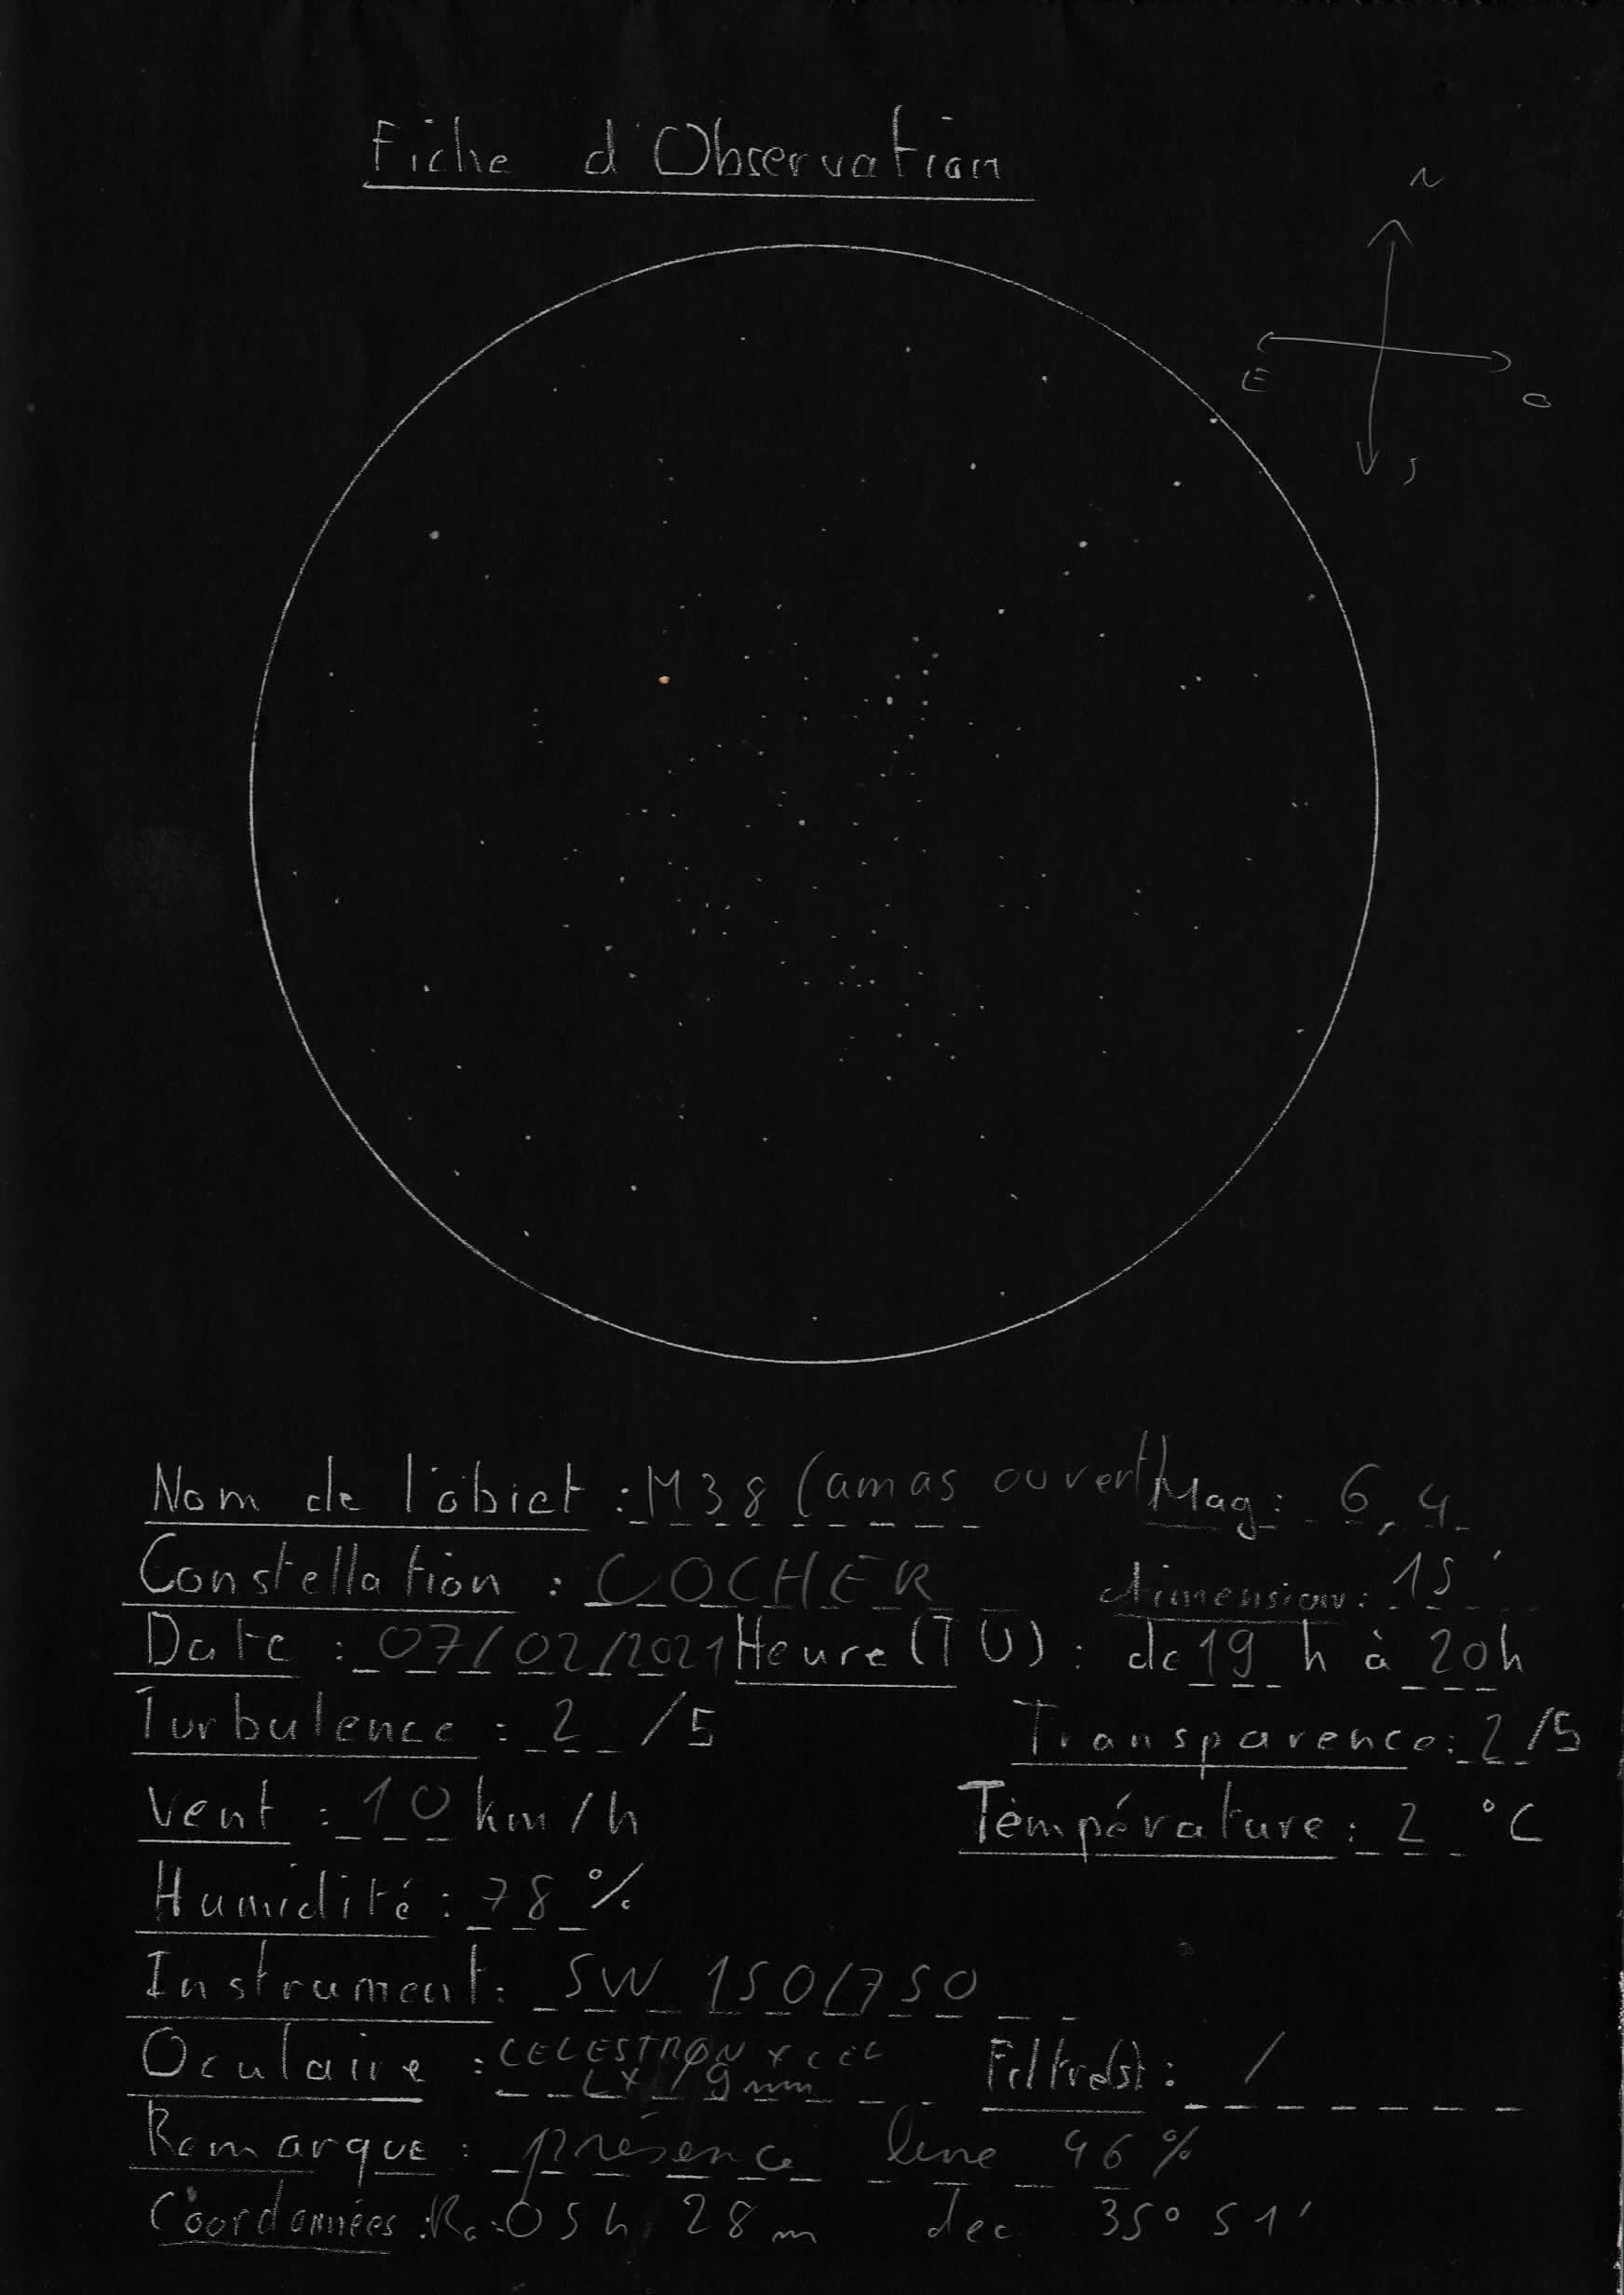 Fiche d'Observation
N
E
O
S
Nom de l'objet : M38 (amas ouvert) Mag : 6,4
Constellation : COCHER dimension : 15'
Date : 07/02/2021 Heure (TU) : de 19 h à 20h
Turbulence : 2 /5 Transparence : 2 /5
Vent : 10 km/h Température : 2 °C
Humidité : 78 %
Instrument : SW 150/750
Oculaire : CELESTRON X CEL Filtre(s) : /
LX / 9 mm
Remarque : présence lune 46 %
Coordonnées : Ra : 05h 28m dec 35° 51'